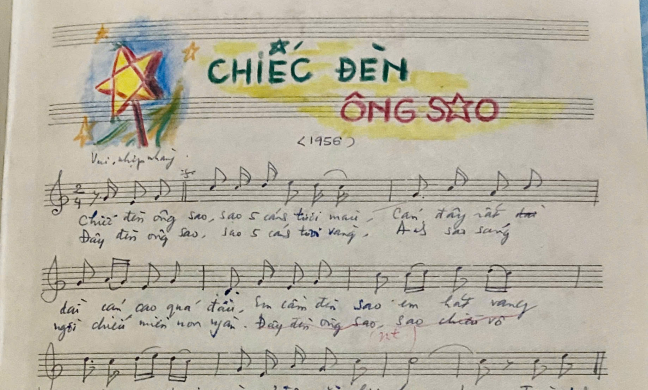 CHIẾC ĐÈN
ÔNG SAO
(1956)
Vui, nhịp nhàng
2/4
Chiếc đèn ông sao, sao 5 cánh tươi màu, Cán đây rất dài
Đây đèn ông sao, sao 5 cánh tươi vàng, Ánh sao sáng
dài cán cao quá đầu, Em cầm đèn sao em hát vang
ngời chiếu miền non ngàn. Đây đèn ông sao, sao chiếu